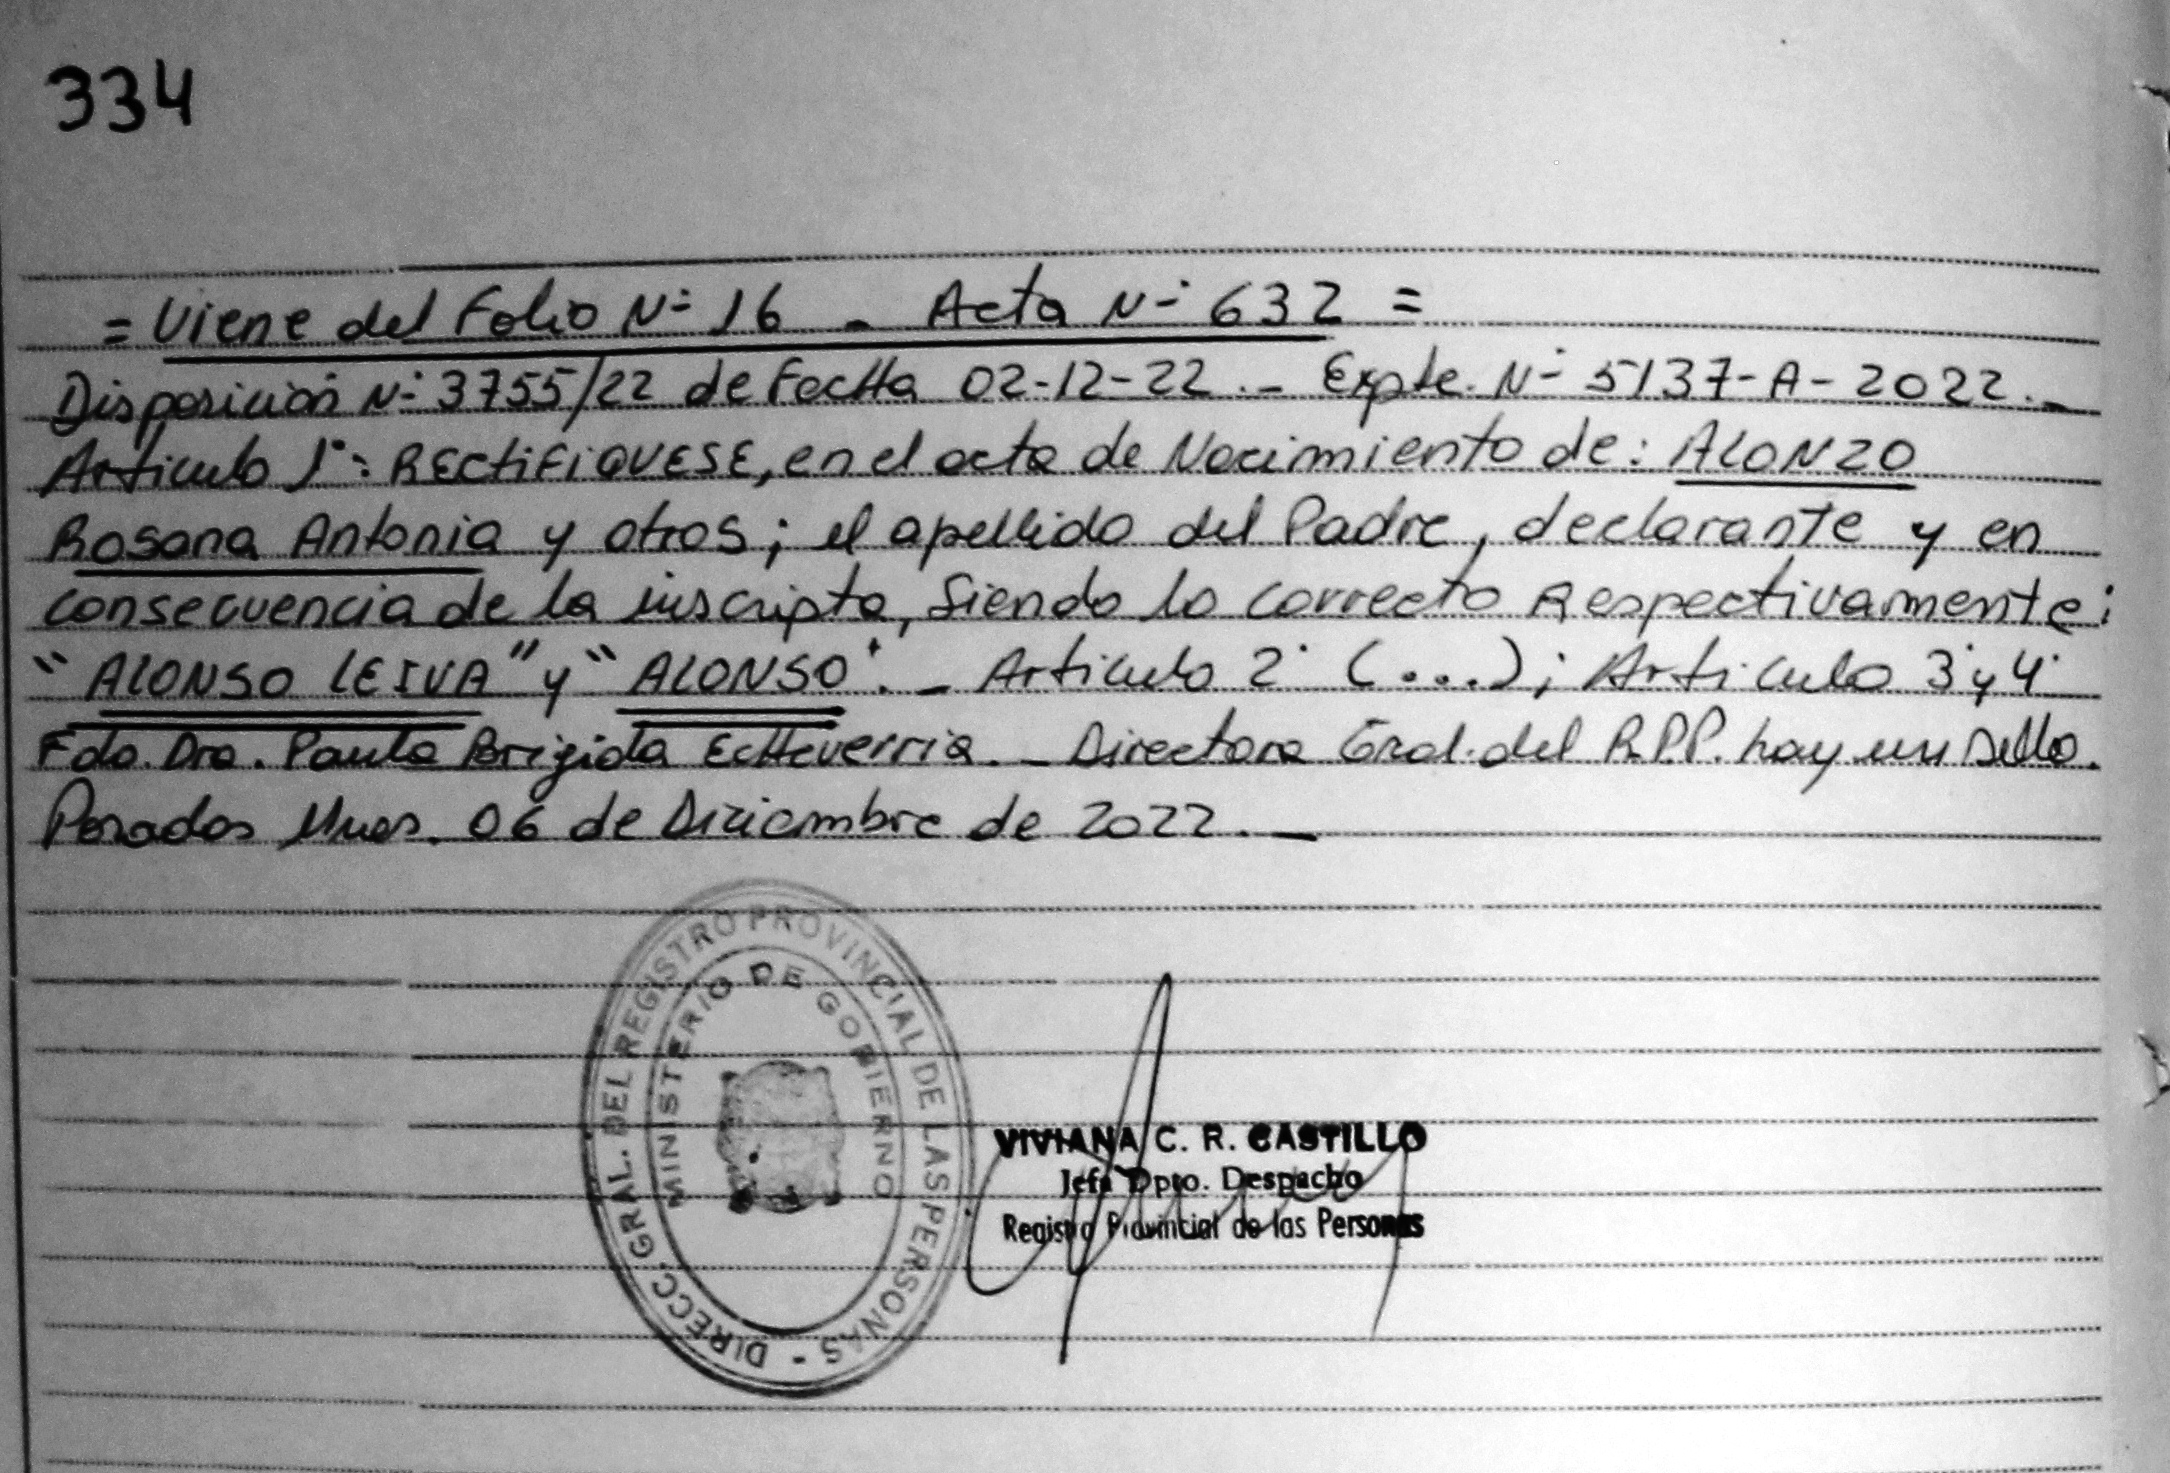 334
= Viene del Folio Nº 16 - Acta Nº 632 =
Disposición Nº 3755/22 de Fecha 02-12-22.- Expte. Nº 5137-A-2022.-
Artículo 1°: RECTIFIQUESE, en el acta de Nacimiento de: ALONZO
Rosana Antonia y otros; el apellido del Padre, declarante y en
consecuencia de la inscripta, Siendo lo correcto Respectivamente:
"ALONSO LEIVA" y "ALONSO".- Artículo 2° (...); Artículo 3° y 4°
Fdo. Dra. Paula Brigida Echeverria.- Directora Gral. del R.P.P. hay un Sello.
Posadas Mnes. 06 de Diciembre de 2022.-
DIRECC. GRAL. DEL REGISTRO PROVINCIAL DE LAS PERSONAS -
MINISTERIO DE GOBIERNO
VIVIANA C. R. CASTILLO
Jefa Dpto. Despacho
Registro Provincial de las Personas